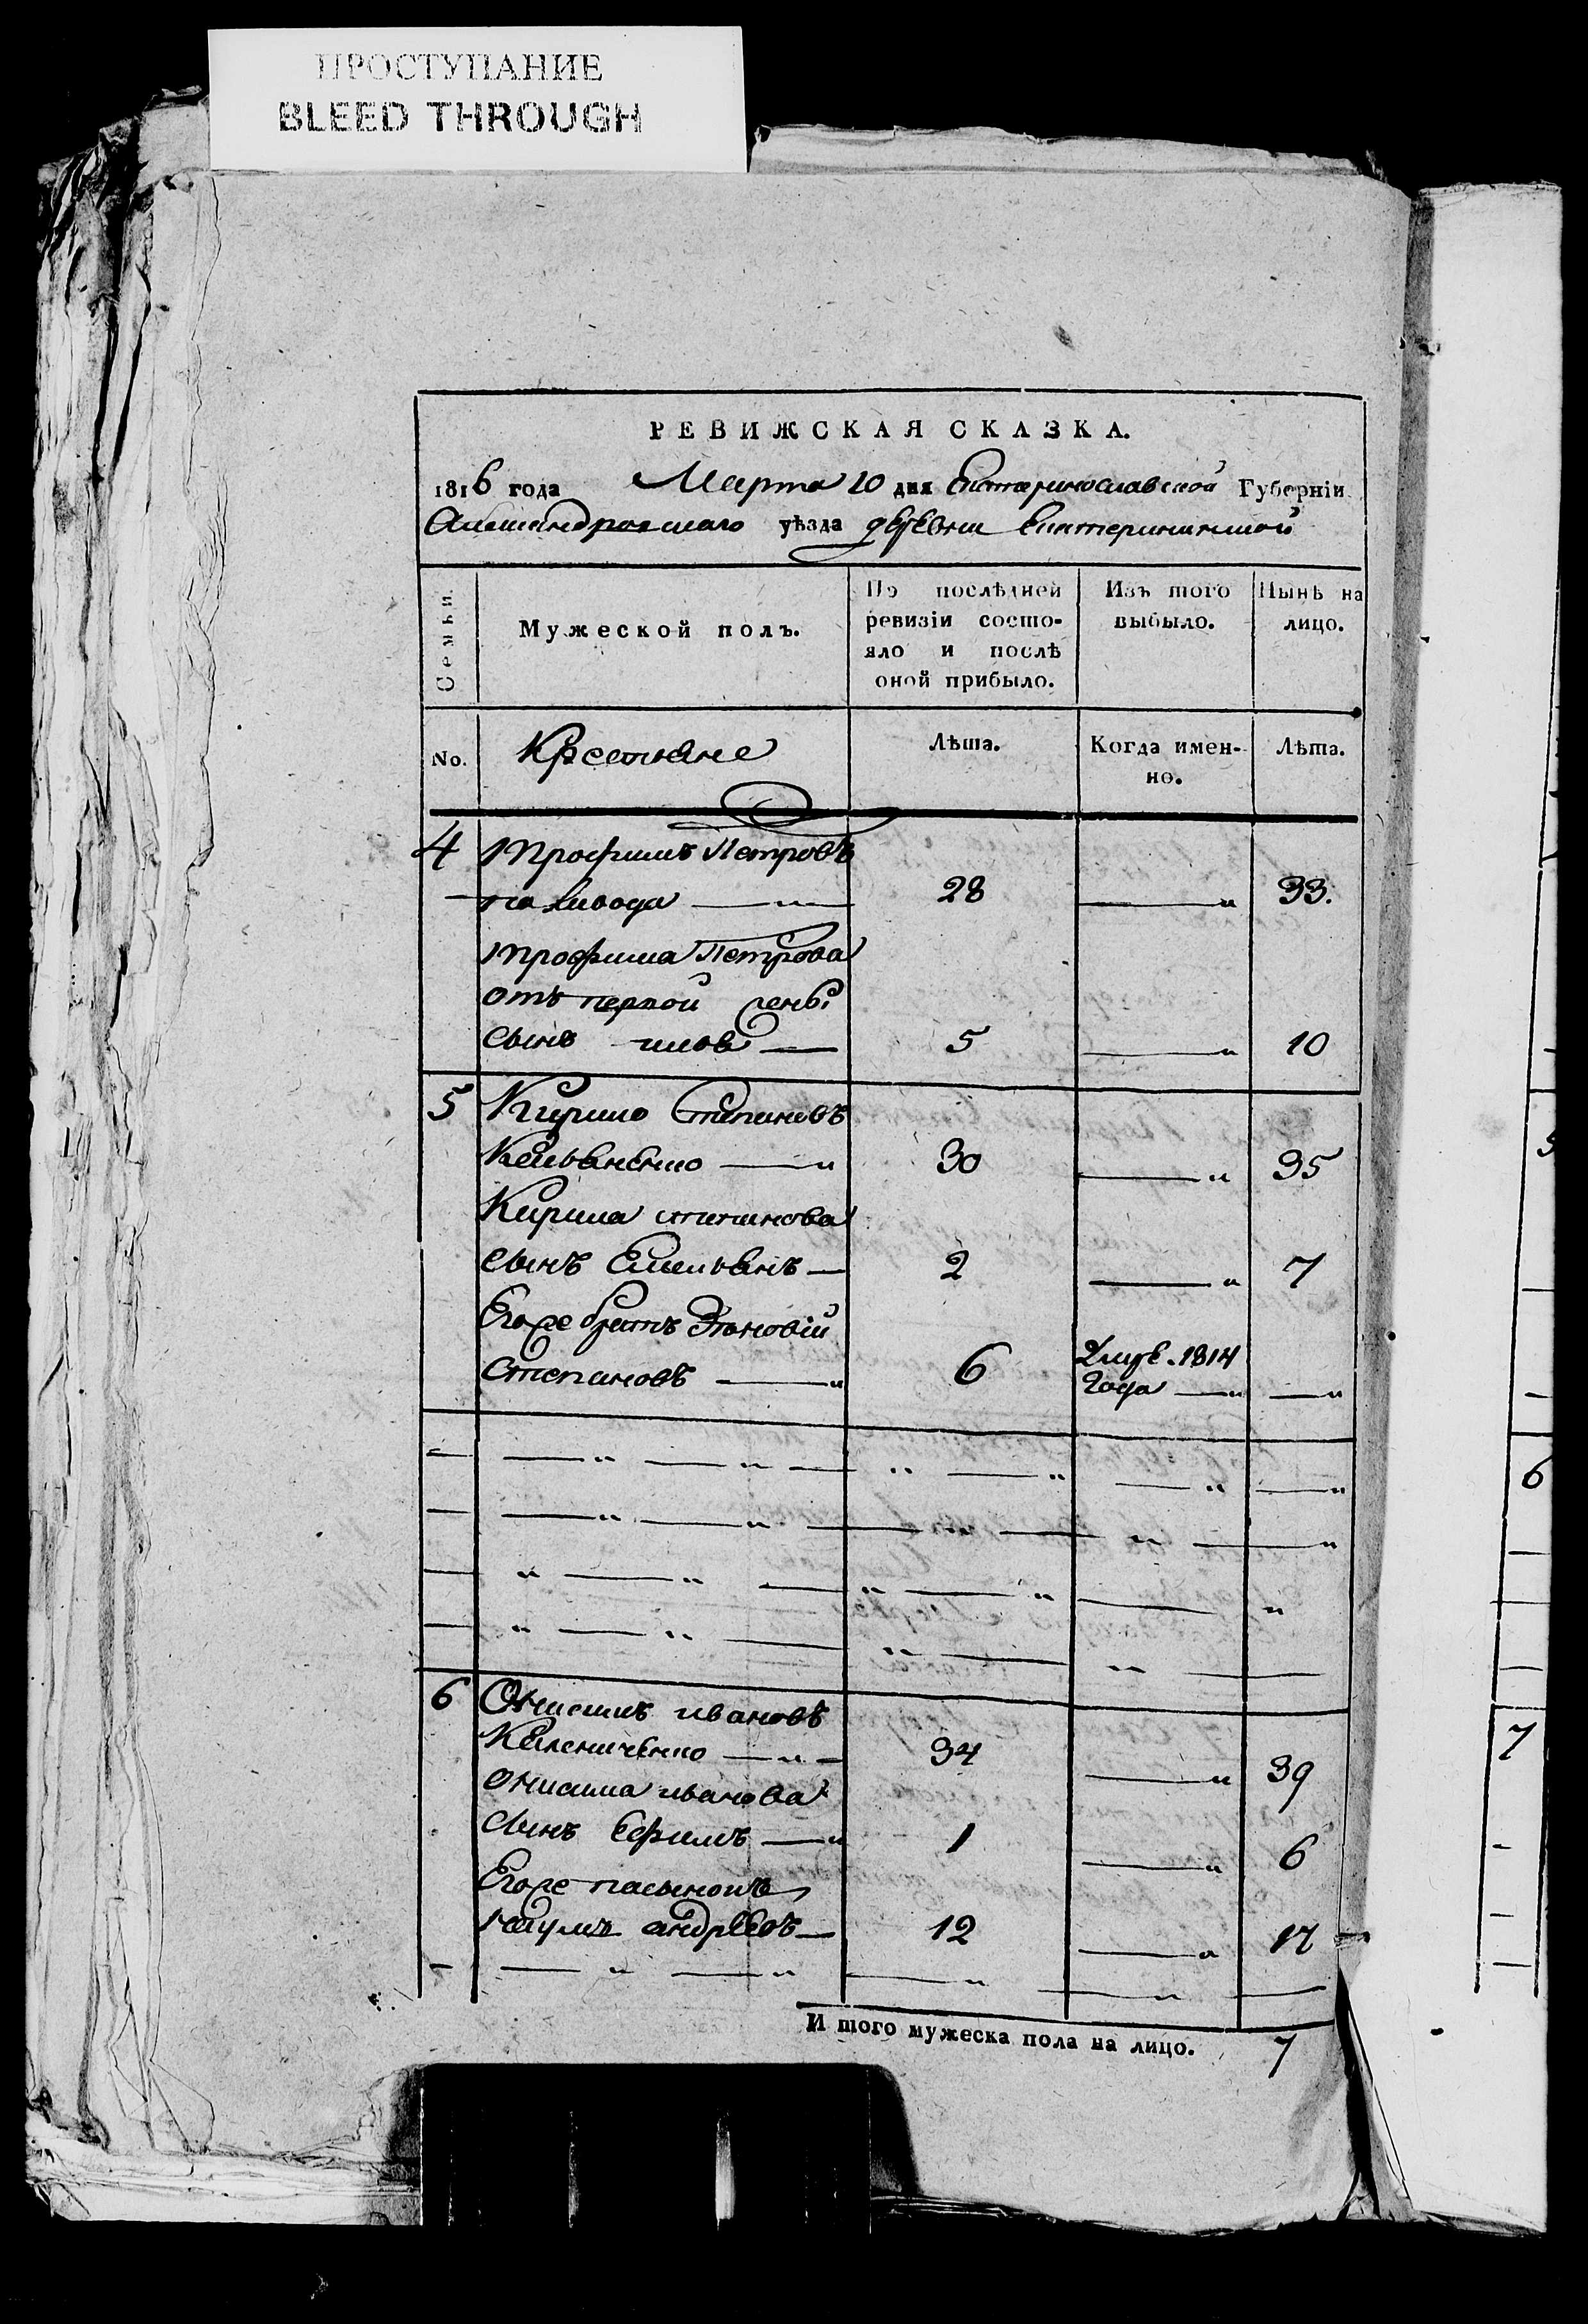 ПРОСТУПАНИЕ
BLEED THROUGH
РЕВИЖСКАЯ СКАЗКА.
1816 года Марта 10 дня Екатеринославской Губерніи
Александровскаго уѣзда деревни Екатерининской
Семьи.
Мужеской полъ.
По послѣдней ревизіи состояло и послѣ оной прибыло.
Изъ того выбыло.
Нынѣ на лицо.
No.
Крестьяне
Лѣта.
Когда именно.
Лѣта.
4 Трофимъ Петровъ
28 33.
Трофима Петрова
отъ первой жены
сынъ 5 10
5 Кирило Степановъ
Емельяненко 30 35
Кирила степанова
сынъ Емельянъ 2 7
Егоже братъ Зѣновій
Степановъ 6 1814
года
6 Онисимъ ивановъ
Калениченко 34 39
Онисима иванова
сынъ Ефимъ 1 6
Егоже пасынокъ
Наумъ андрѣевъ 12 17
И того мужеска пола на лицо. 7
5
6
7